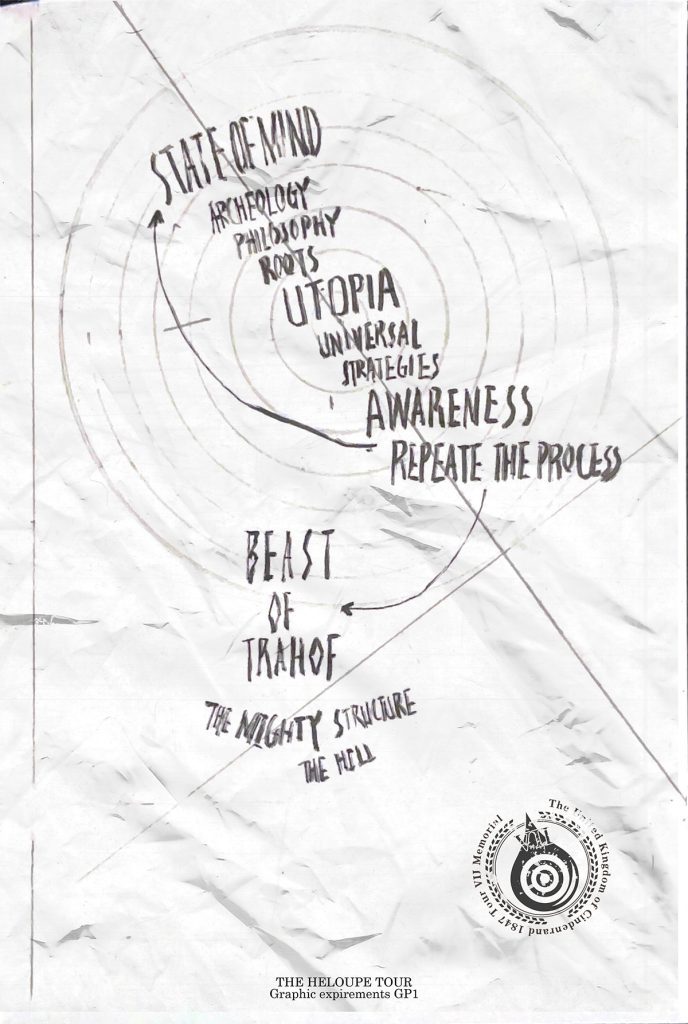 STATE OF MIND
ARCHEOLOGY
PHILOSOPHY
ROOTS
UTOPIA
UNIVERSAL
STRATEGIES
AWARENESS
REPEATE THE PROCESS
BEAST
OF
TRAHOF
THE MIGHTY STRUCTURE
THE HILL
The United Kingdom of Cindenrand 1847 Tour VIJ Memorial
THE HELOUPE TOUR
Graphic expirements GP1